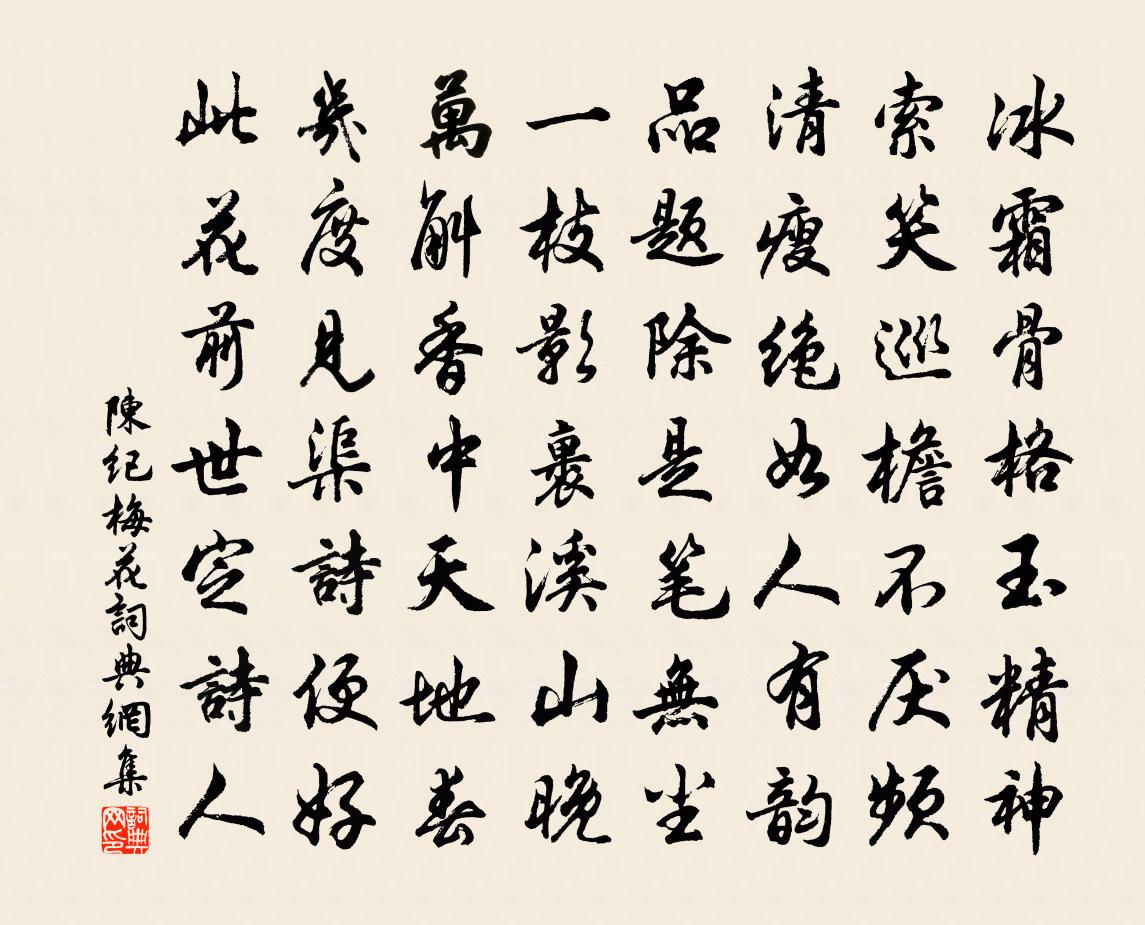 冰霜骨格玉精神
索笑巡檐不厌频
清瘦绝如人有韵
品题除是笔無尘
一枝影裹溪山晚
萬斛香中天地春
幾度見渠詩便好
此花前世定詩人
陳纪梅花詞典網集
詞典
网印